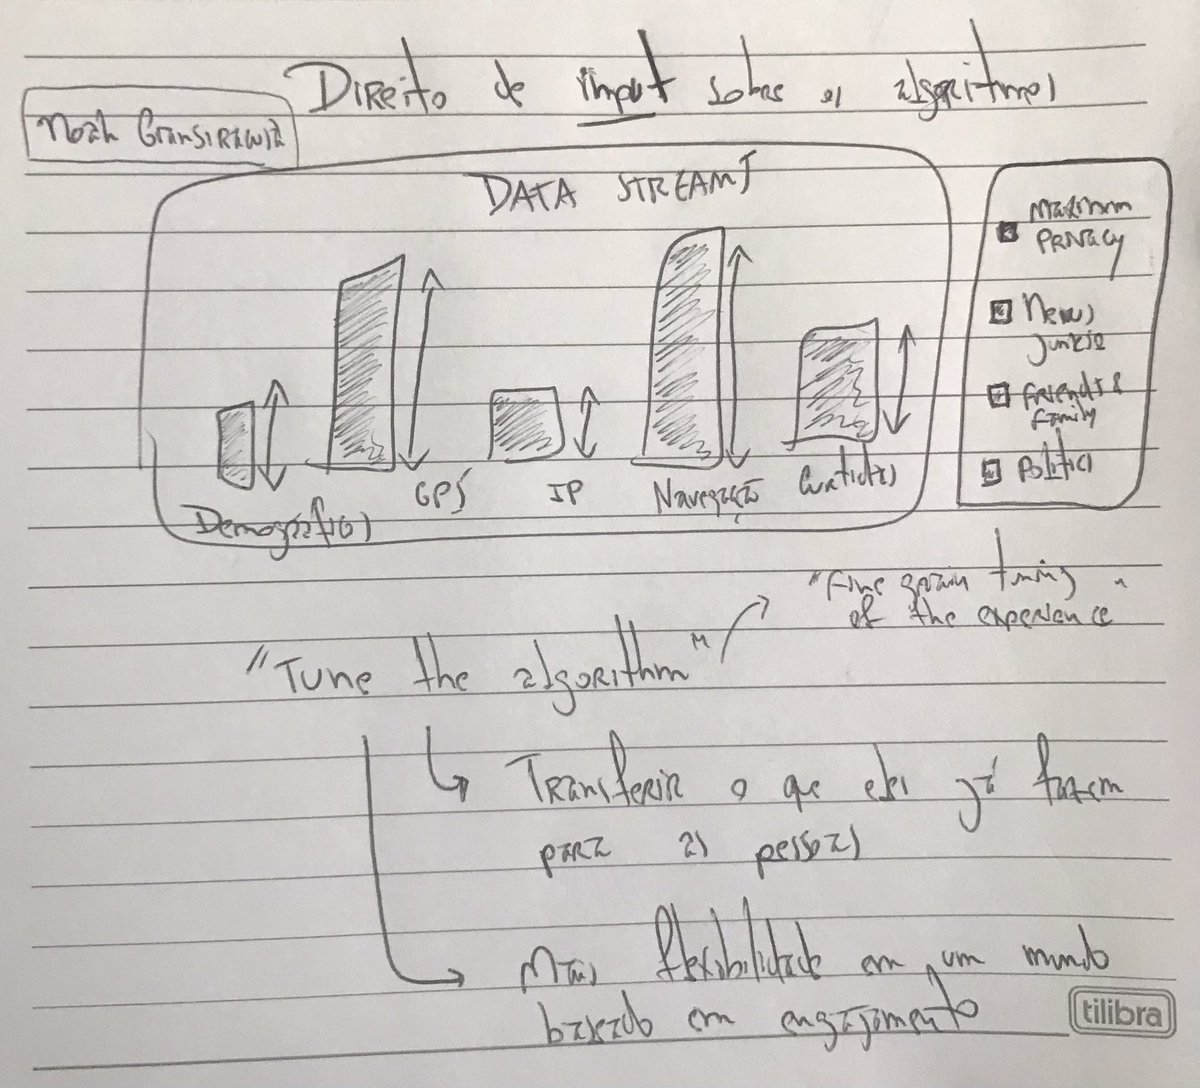 Direito de input sobre os algoritmos
Noah
DATA STREAMS
Demográficos
GPS
IP
Navegação
Curtidas
Maximum
Privacy
News
junkie
Friends &
Family
Politics
"Fine grain tuning
of the experience"
"Tune the algorithm"
Transferir o que eles já fazem
para as pessoas
Mais flexibilidade em um mundo
baseado em engajamento
tilibra